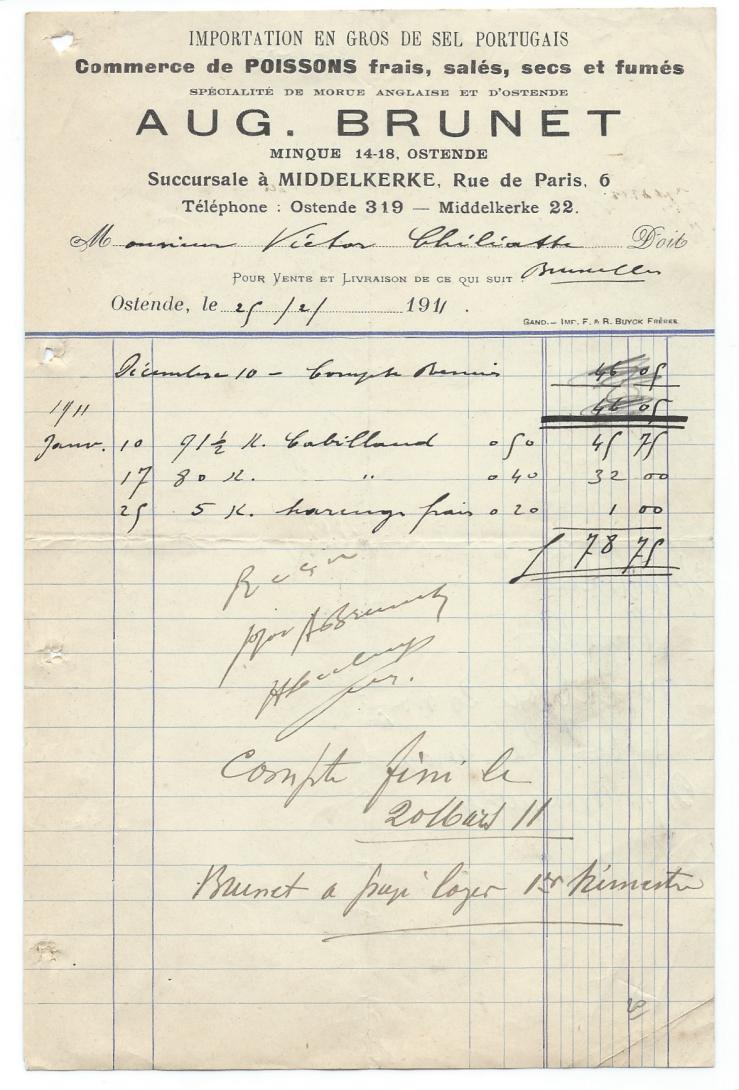 IMPORTATION EN GROS DE SEL PORTUGAIS
Commerce de POISSONS frais, salés, secs et fumés
SPÉCIALITÉ DE MORUE ANGLAISE ET D'OSTENDE
AUG. BRUNET
MINQUE 14-18, OSTENDE
Succursale à MIDDELKERKE, Rue de Paris, 6
Téléphone : Ostende 319 — Middelkerke 22.
Monsieur Victor Doit
POUR VENTE ET LIVRAISON DE CE QUI SUIT : Bruxelles
Ostende, le 25/2/ 1911.
GAND.— IMP. F. & R. BUYCK FRÈRES.
Décembre 10 — Compte Remis 46 05
1911 46 05
Janv. 10 91½ K. Cabillaud 0 50 45 75
17 80 K. " 0 40 32 00
25 5 K. harengs frais 0 20 1 00
f 78 75
Reçu
pour A Brunet
Compte fini le
20 Mars 11
Brunet a payé loyer 1er trimestre